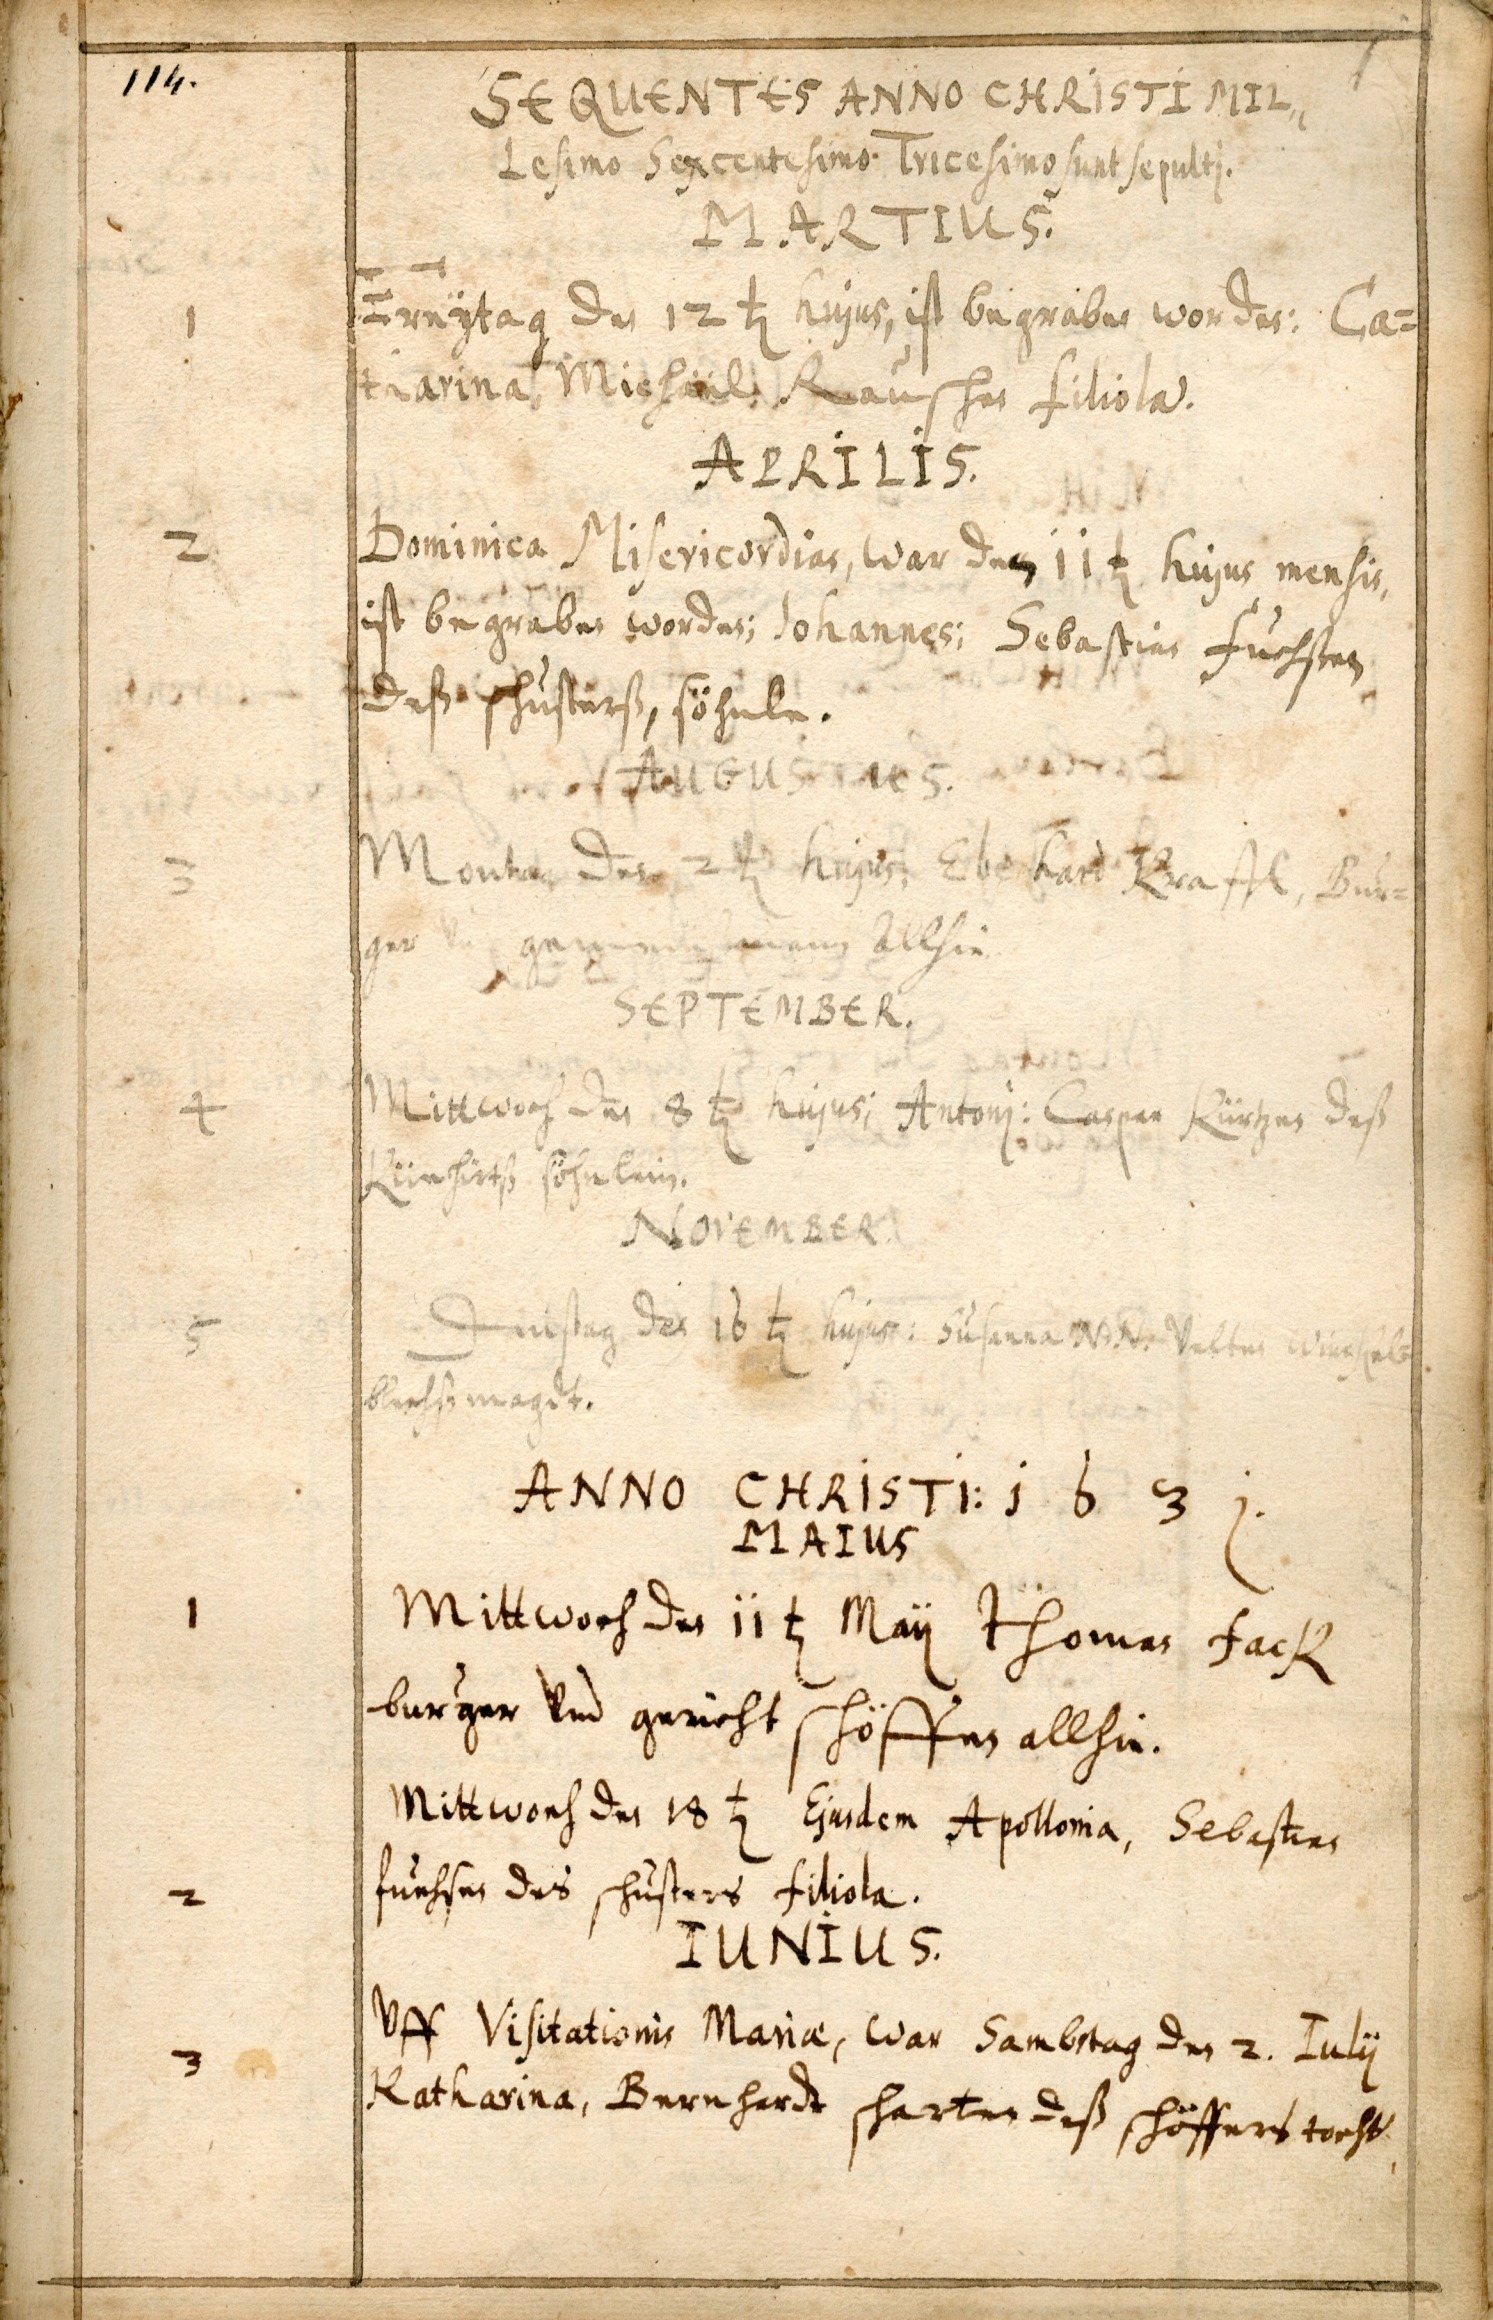 114.
SEQUENTES ANNO CHRISTI MIL„
Lesimo Sexcentesimo Tricesimo sunt sepultj.
MARTIUS.
1 Freÿtag den 12 t hujus, ist begraben worden: Ca=
tharina, Michael Rauschen filiola.
APRILIS.
2 Dominica Misericordias, war den 11 t hujus mensis,
ist begraben worden; Johannes; Sebastian Fuchsen
deß schusterß, söhnle.
AUGUSTUS.
3 Montag den 2 t hujus; Eberhard Krafft, Bur=
ger allhie
SEPTEMBER.
4 Mittwoch den 8 t hujus; Antonj: Caspar Kürtzen deß
Küehirtß söhnlein.
NOVEMBER.
5 Dinstag den 16 t hujus: Susanna N.N. Velten
magdt.
ANNO CHRISTI: 1 6 3 j.
MAIUS
1 Mittwoch den 11 t Maÿ Thomas Fack
burger vnd gericht schöffen allhie.
Mittwoch den 18 t Ejusdem Apollonia, Sebastian
2 fuchsen des schusters filiola.
IUNIUS.
Vff Visitationis Mariæ, war Sambstag den 2. Iulij
3 Katharina, Bernhardt scharten deß schöffers tocht.